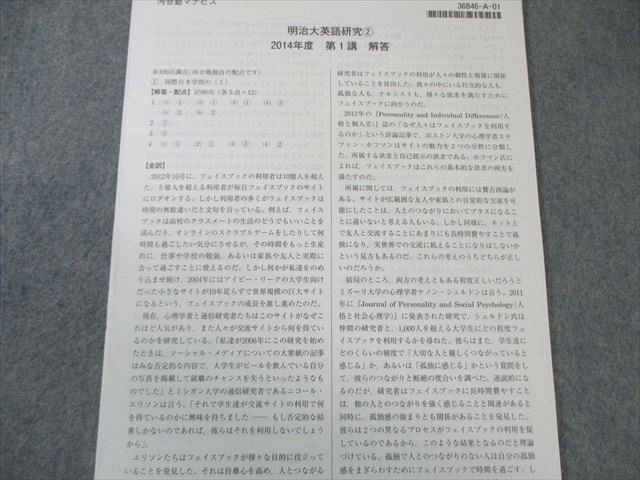 河合塾マナビス
36846-A-01
明治大英語研究②
2014年度 第1講 解答
※100点満点(河合塾独自の配点です)
① 国際日本学部の〔Ⅰ〕
【解答・配点】 計60点(各5点×12)
1 (1) ① (2) ① (3) ① (4) ③
(5) ② (6) ③
2 ①
3 ④
4 (1) ① (2) ① (3) ① (4) ①
【全訳】
2012年10月に,フェイスブックの利用者は10億人を超え
た。5億人を超える利用者が毎日フェイスブックのサイト
にログオンする。しかし利用者の多くがフェイスブックは
時間の無駄遣いだと文句を言っている。例えば,フェイス
ブックは高校のクラスメートの生活のどうでもいいことを
読んだり,オンラインのスクラブルゲームをしたりして何
時間も過ごしたい気分にさせるが,その時間をもっと生産
的に,仕事や学校の勉強,あるいは家族や友人と実際に
会って過ごすことに使えるのだ。しかし何かが私達をのめ
り込ませ続け,2004年にはアイビー・リーグの大学生向け
だった小さなサイトが10年足らずで世界規模の巨大サイト
になるという,フェイスブックの成長を推し進めたのだ。
現在,心理学者と通信研究者たちはこのサイトがなぜこ
れほど人気があり,また人々が交流サイトから何を得てい
るのかを研究している。「私達が2006年にこの研究を始め
たときは,ソーシャル・メディアについての大衆紙の記事
はみな否定的な内容で,大学生がビールを飲んでいる自分
の写真を掲載して就職のチャンスを失うといったようなも
のでした」とミシガン大学の通信研究者であるニコール・
エリソンは言う。「それで学生達が交流サイトの利用で何
を得ているのかに興味を持ちました ―― もし否定的な結
果しかないのであれば,彼らはそれを利用しないでしょう
から」。
エリソンたちはフェイスブックが様々な目的に役立って
いることを発見した。それは自尊心を高め,人とつながる
研究者はフェイスブックの利用が人々の個性と複雑に関係
していることを見出した。我々の中にいる社交的な人も,
孤独な人も,ナルシストも,様々な欲求を満たすために
フェイスブックに向かうのだ。
2012年の『Personality and Individual Differences(人
格と個人差)』誌の「なぜ人々はフェイスブックを利用す
るのか」という評論記事で,ボストン大学の心理学者ステ
ファン・ホフマンはサイトの魅力を2つの分野に分類し
た。所属する欲求と自己提示の欲求である。ホフマン氏に
よれば,フェイスブックはこれらの基本的な欲求の両方を
満たすのだ。
所属に関しては,フェイスブックの利用には賛否両論が
ある。サイトが広範囲な友人や家族との日常的な交流を可
能にしたことは,人とのつながりにおいてプラスになるこ
とに違いないと考える人もいる。しかし同様に,ネット上
で友人と交流することにあまりにも長時間費やすことで孤
独になり,実世界での交流に飢えることになりはしないか
という見方もあるのだ。これらの考えのうちどちらが正し
いのだろうか。
結局のところ,両方の考えともある程度正しいのだろう
とミズーリ大学の心理学者ケノン・シェルドンは言う。2011
年に『Journal of Personality and Social Psychology(人
格と社会心理学)』に発表された研究で,シェルドン氏は
仲間の研究者と,1,000人を超える大学生にどの程度フェ
イスブックを利用するかを尋ねた。彼らはまた,学生達に
どのくらいの頻度で「大切な人と親しくつながっていると
感じる」か,あるいは「孤独に感じる」かという質問をし
て,彼らのつながりと断絶の度合い調べた。逆説的にな
るのだが,研究者はフェイスブックに長時間費やすこと
は,他の人とのつながりを強く感じることと関連があると
同時に,孤独感の強まりとも関係があることを発見した。
彼らは2つの異なるプロセスがフェイスブックの利用を促
しているのであるから,このような結果となるのだと理論
づけている。孤独で人とのつながりのない人は自分の孤独
感をまぎらわすためにフェイスブックで時間を過ごす。し